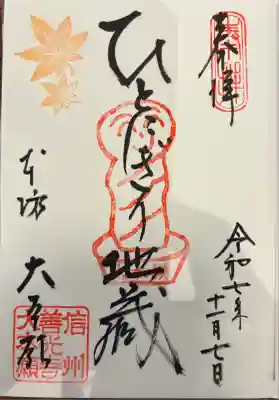 奉拝
令和七年
十一月七日
ひとにぎり地蔵
本坊 大本願
信州
善光寺
大本願